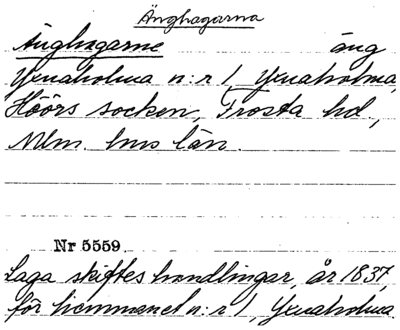 Änghagarna
Änghagarne äng
Yxnaholma n:r 1, Yxnaholma,
Höörs socken, Frosta hd.,
Mlm. hus län.
Nr 5559
Laga skiftes handlingar år 1837
för hemmanet n:r 1, Yxnaholma.